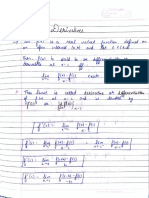 Derivative
f(x) is a real valued function defined on
an open interval (a,b) and let c ∈ (a,b)
Then f(x) is said to be differentiable or
derivable at x = c iff
lim f(x)-f(c) exists
x-c
This limit is called derivative or differentiation
of f(x) at x = c and is denoted by
f'(c) or
f'(c) = lim f(x)-f(c)
x-c
f'(c) = lim f(c+h)-f(c)
h
f'(c) = lim f(c-h)-f(c)
-h